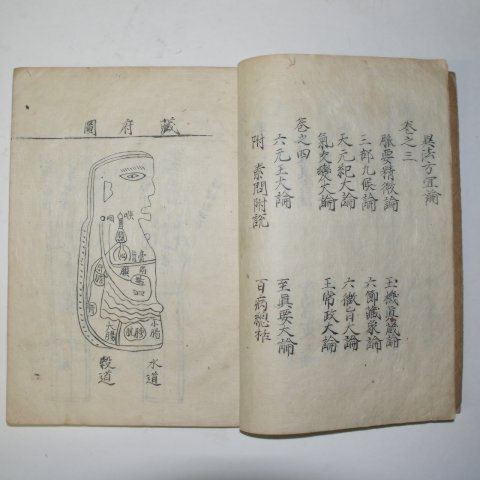 異法方宜論
卷之三
脉要精微論 玉機真蔵論
三部九候論 六節蔵象論
天元紀大論 六微旨大論
氣交變大論 五常政大論
卷之四
六元正大論 至真要大論
附 素問附説 百病總括
藏府圖
喉
肺
心
大腸
膀胱
小腸
水道
穀道